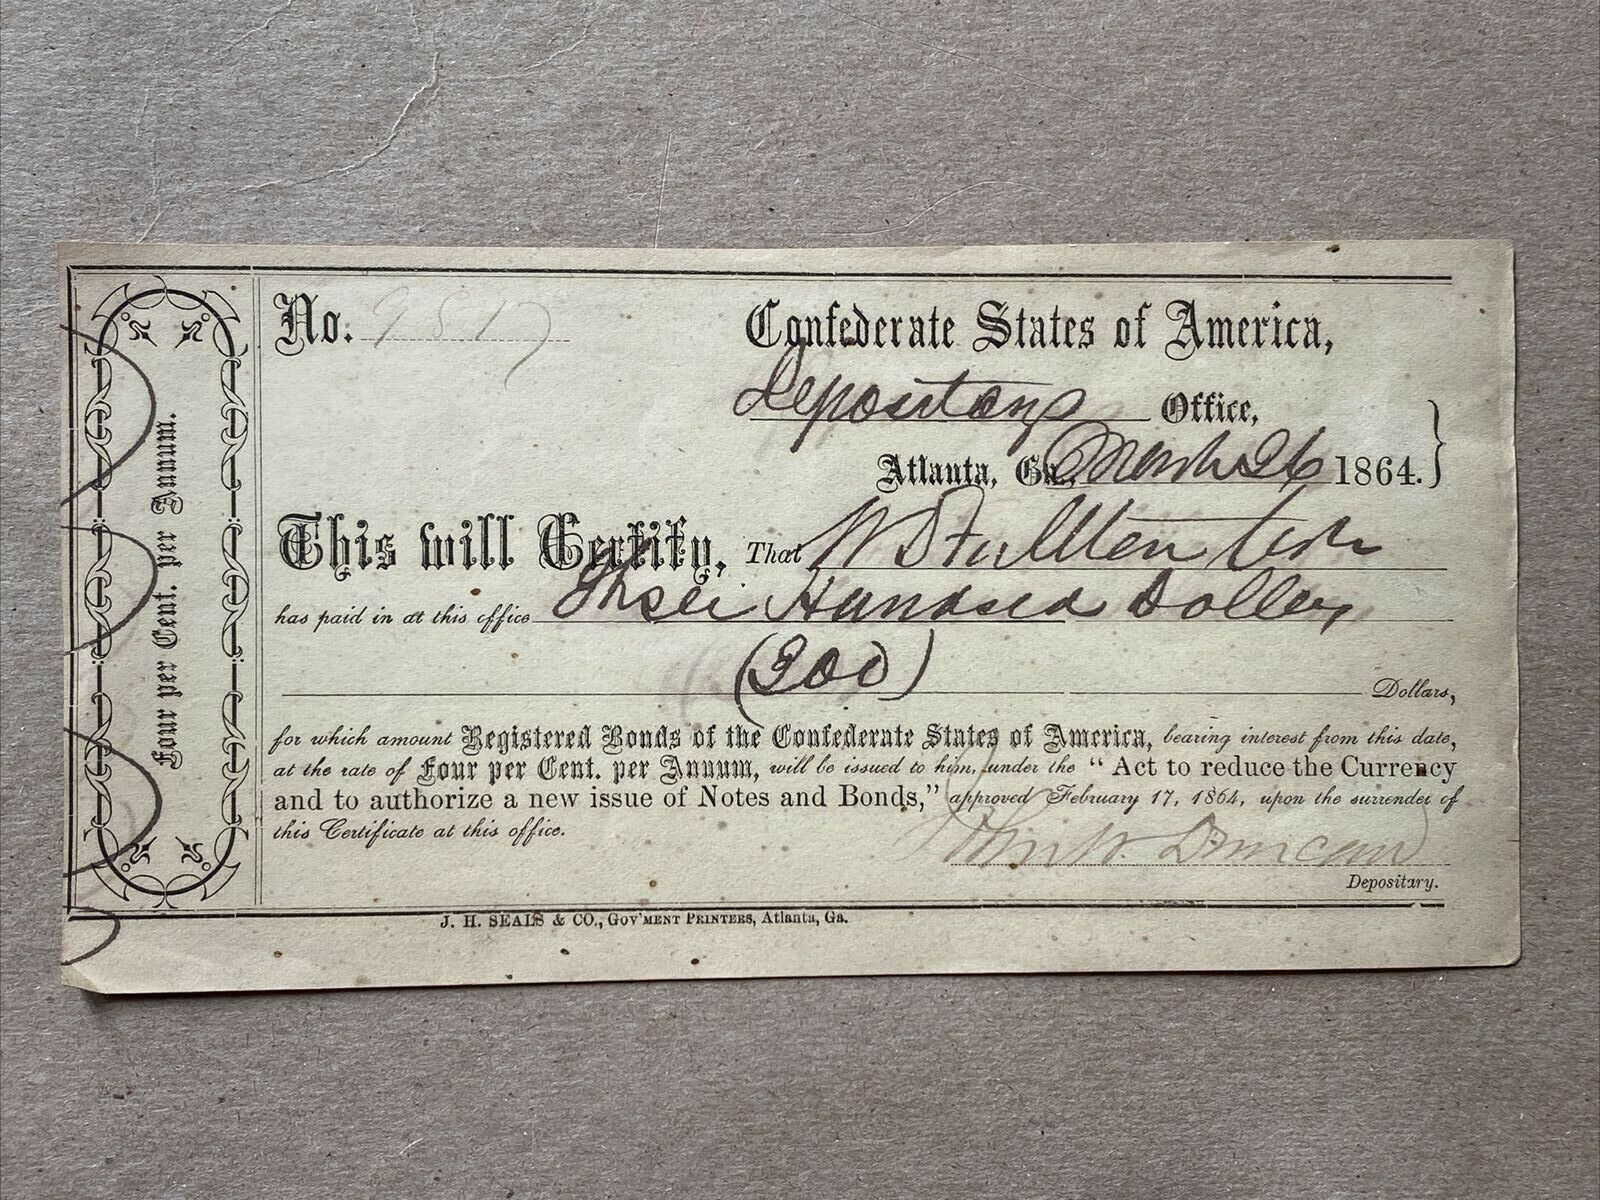 No. 9517
Confederate States of America,
Depositary Office,
Atlanta, Ga., March 26 1864.
This will Certify, That W D
has paid in at this office Three Hundred Dollars
(300)
Dollars,
for which amount Registered Bonds of the Confederate States of America, bearing interest from this date,
at the rate of Four per Cent. per Annum, will be issued to him, under the " Act to reduce the Currency
and to authorize a new issue of Notes and Bonds," approved February 17, 1864, upon the surrender of
this Certificate at this office.
W. Duncan
Depositary.
J. H. SEALS & CO., GOV'MENT PRINTERS, Atlanta, Ga.
Four per Cent. per Annum.